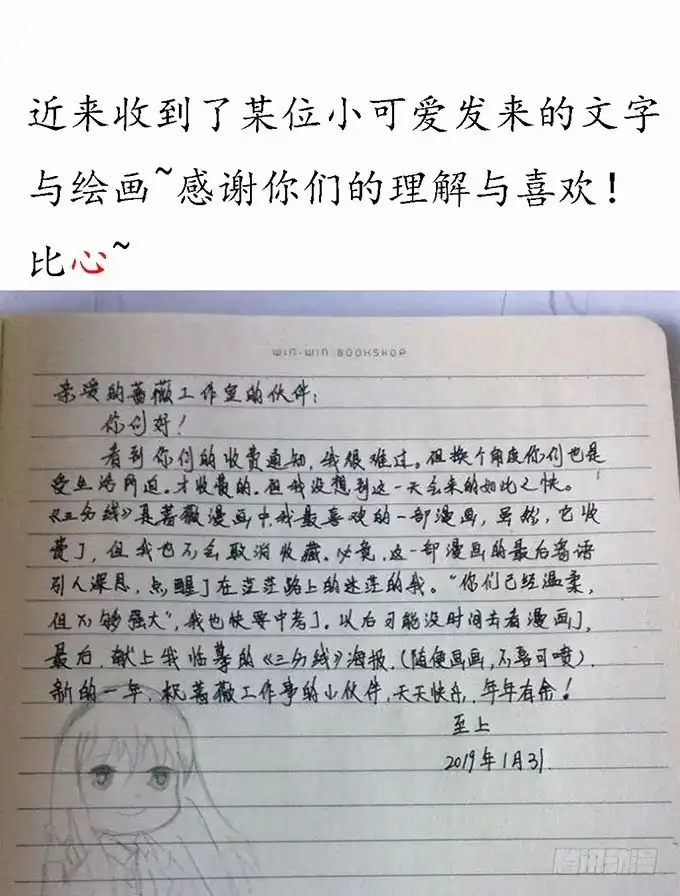 近来收到了某位小可爱发来的文字
与绘画~感谢你们的理解与喜欢!
比心~
WIN-WIN BOOKSHOP
亲爱的蔷薇工作室的伙伴：
你们好！
看到你们的收费通知，我很难过。但换个角度你们也是
受生活所迫，才收费的。但我没想到这一天会来的如此之快。
《三分线》是蔷薇漫画中我最喜欢的一部漫画，虽然，它收
费了，但我也不会取消收藏。必竟，这一部漫画的最后寄语
引人深思，点醒了在茫茫路上的迷茫的我。“你们已经温柔，
但不够强大”，我也快要中考了。以后可能没时间去看漫画了，
最后，献上我临摹的《三分线》海报，（随便画画，不喜可喷）.
新的一年，祝蔷薇工作室的小伙伴，天天快乐，年年有余！
至上
2019年1月31.
腾讯动漫